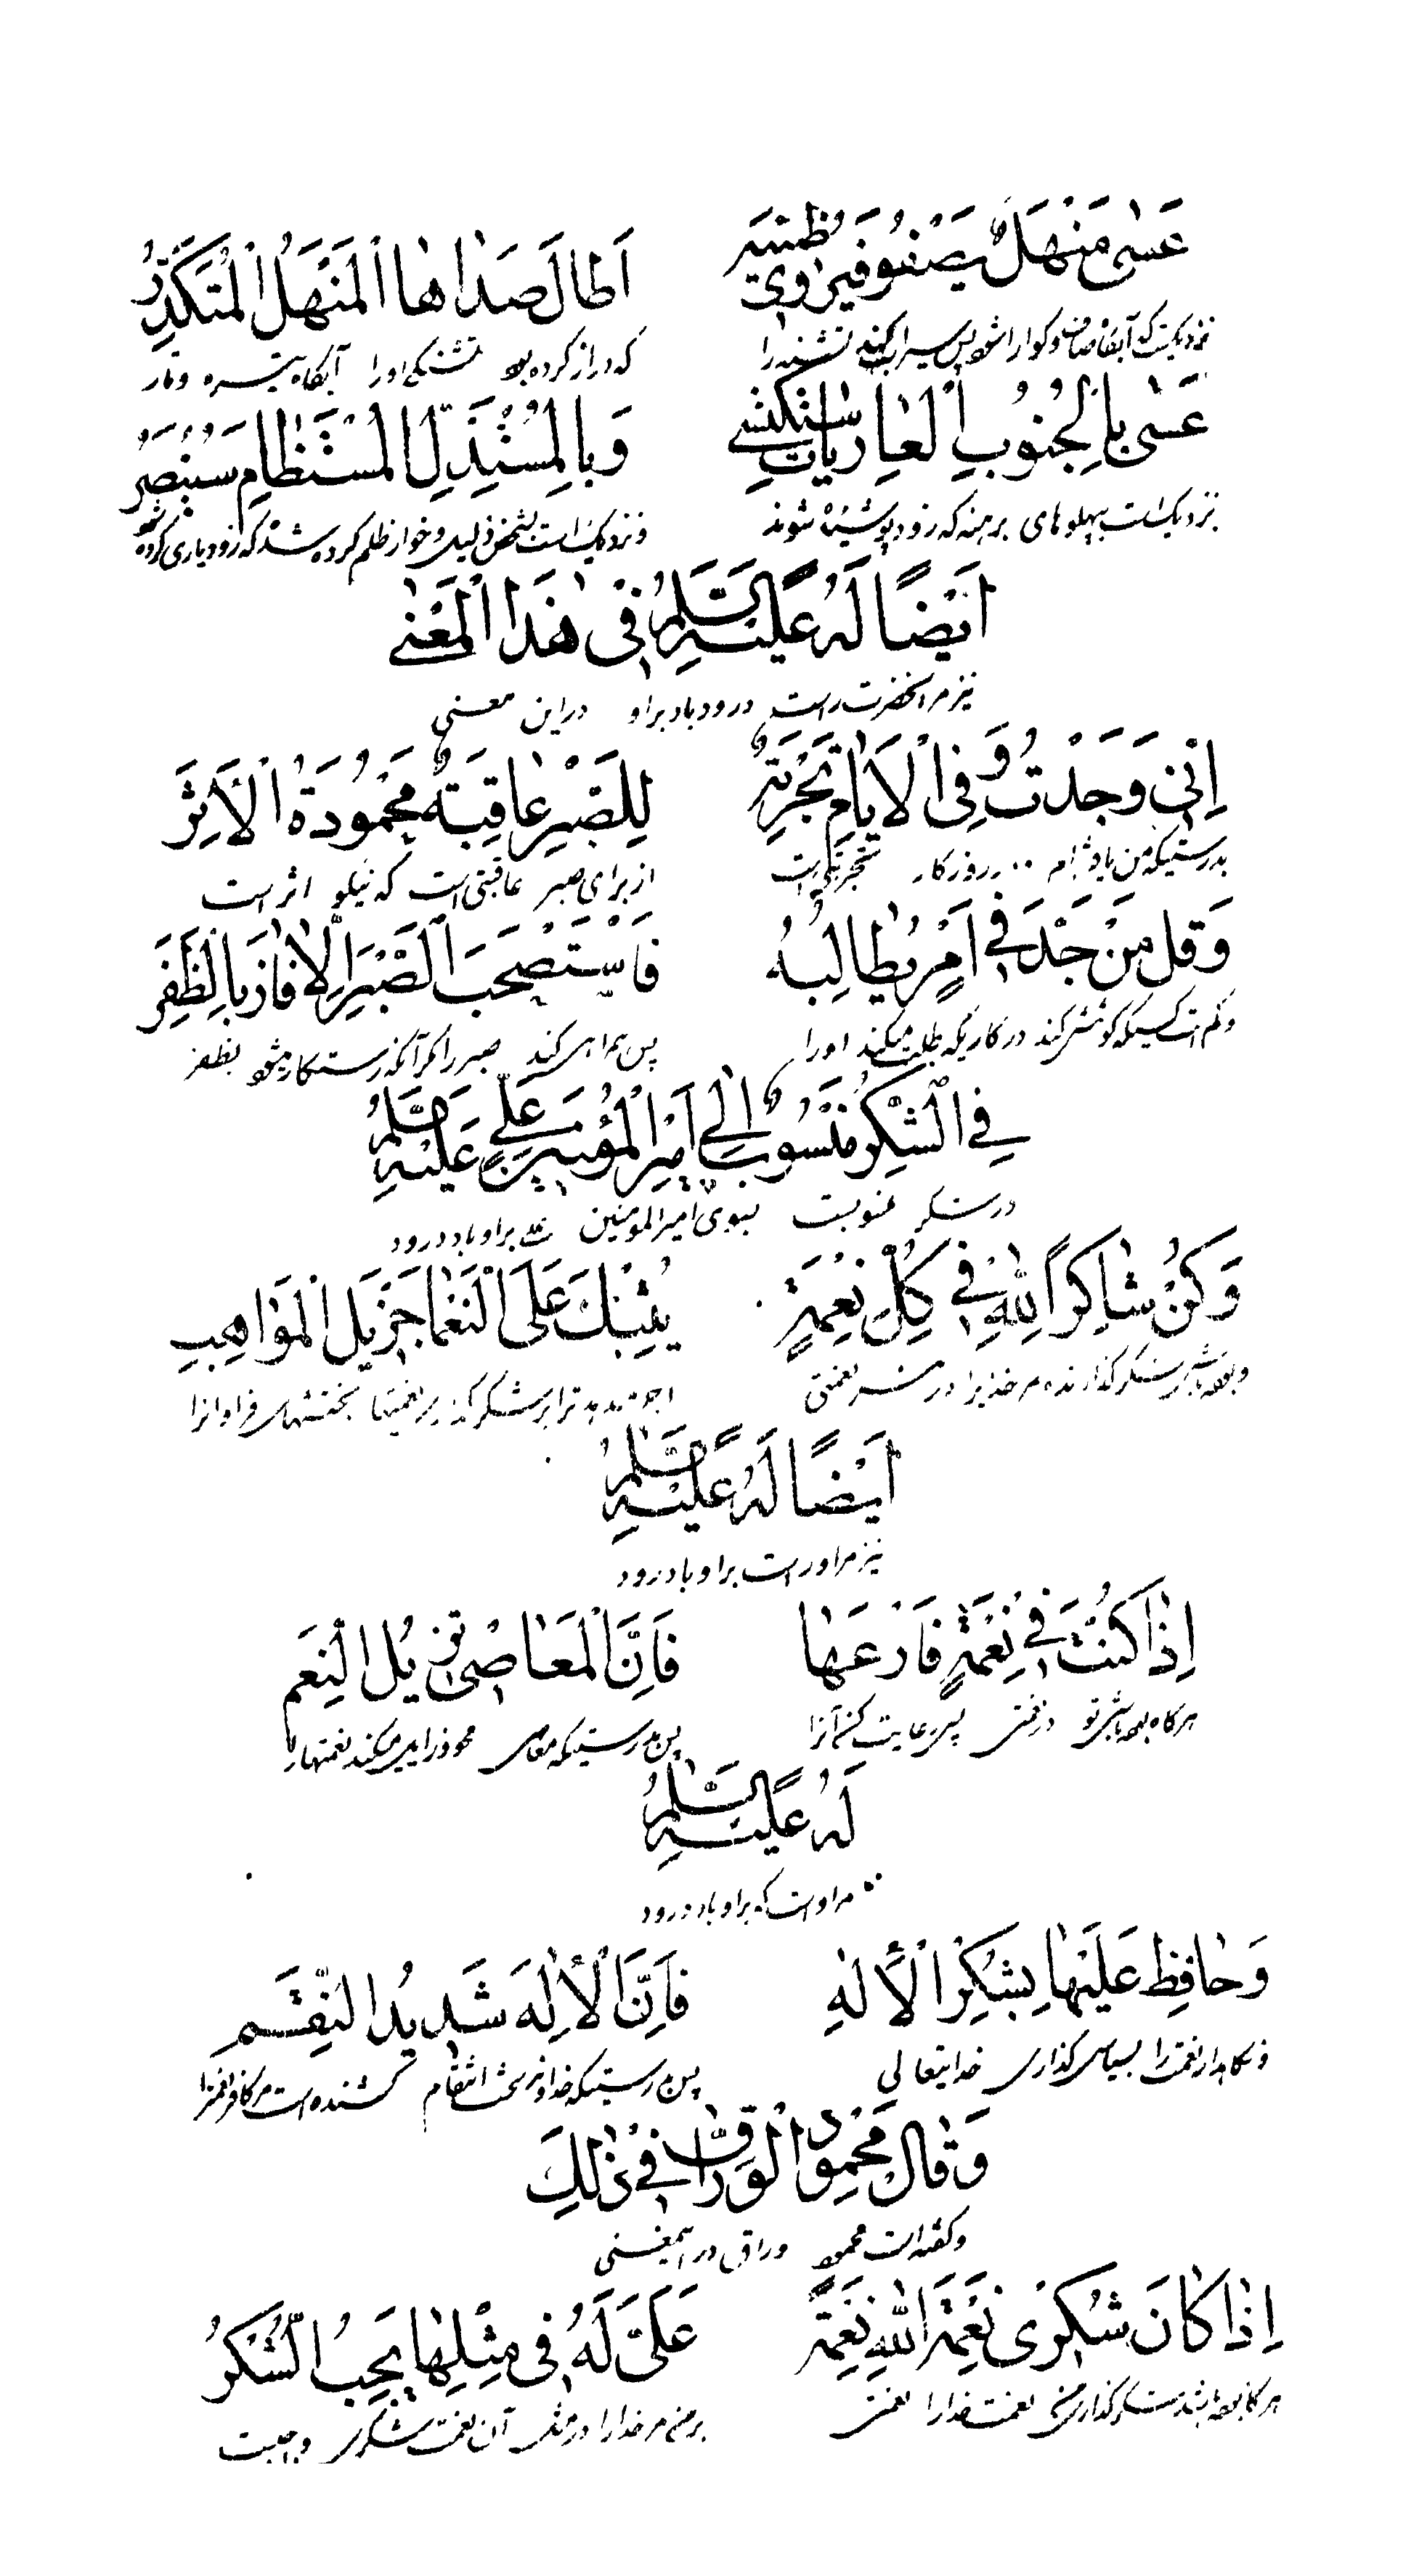 عَسٰى مَنْهَلٌ يَصْفُو فَيُرْوِي ظَمِيَّةً
اَطَالَ صَدَاهَا الْمَنْهَلُ الْمُتَكَدِّرُ
نزدیکست که آبگاه صاف و گوارا شود پس سیراب کند تشنه را
که دراز کرده بود تشنگی او را آبگاه تیره و تار
عَسٰى بِالْجُنُوبِ الْعَارِيَاتِ سَتَكْتَسِي
وَبِالْمُسْتَذِلِّ الْمُسْتَظَامِ سَيُنْصَرُ
نزدیک است پهلوهای برهنه که زود پوشیده شوند
و نزدیک است شخص ذلیل و خوار ظلم کرده شده که زود یاری کرده شود
اَيْضًا لَهُ عَلَيْهِ السَّلَامُ فِى هٰذَا الْمَعْنٰى
نیز مر آنحضرت راست درود باد بر او در این معنی
اِنِّى وَجَدْتُ وَفِى الْاَيَّامِ تَجْرِبَةٌ
لِلصَّبْرِ عَاقِبَةً مَحْمُودَةَ الْاَثَرِ
بدرستیکه من یافته‌ام در روزگار تجربه است
از برای صبر عاقبتی است که نیکو اثر است
وَقَلَّ مَنْ جَدَّ فِى اَمْرٍ يُطَالِبُهُ
فَاسْتَصْحَبَ الصَّبْرَ اِلَّا فَازَ بِالظَّفَرِ
و کم است کسیکه کوشش کند در کاریکه طلب میکند او را
پس همراهی کند صبر را مگر آنکه رستگار میشود بظفر
فِى الشُّكْرِ مَنْسُوبٌ اِلٰى اَمِيرِ الْمُؤْمِنِينَ عَلِىٍّ عَلَيْهِ السَّلَامُ
در شکر منسوبست بسوی امیرالمومنین علی بر او باد درود
وَكُنْ شَاكِرًا لِلّٰهِ فِى كُلِّ نِعْمَةٍ
يُثِبْكَ عَلَى النَّعْمَا جَزِيلَ الْمَوَاهِبِ
شکر گذارنده مر خدیرا در هر نعمتی
ترا بر شکر نعمتها بخششهای فراوان را
اَيْضًا لَهُ عَلَيْهِ السَّلَامُ
نیز مر او راست بر او باد درود
اِذَا كُنْتَ فِى نِعْمَةٍ فَارْعَهَا
فَاِنَّ الْمَعَاصِى تُزِيلُ النِّعَمَ
هرگاه بوده باشی تو در نعمتی پس رعایت کن آنرا
پس بدرستیکه معاصی محو و زایل میکند نعمتها را
لَهُ عَلَيْهِ السَّلَامُ
مر او راست که بر او باد درود
وَحَافِظْ عَلَيْهَا بِشُكْرِ الْاِلٰهِ
فَاِنَّ الْاِلٰهَ شَدِيدُ النِّقَمِ
و نگاهدار نعمت را بسپاس گذاری خدایتعالی
پس بدرستیکه خداوند سخت انتقام کشنده است مر کافر نعمت را
وَقَالَ مَحْمُودٌ الْوَرَّاقُ فِى ذٰلِكَ
و گفته است محمود وراق در این معنی
اِذَا كَانَ شُكْرِى نِعْمَةَ اللّٰهِ نِعْمَةً
عَلَىَّ لَهُ فِى مِثْلِهَا يَجِبُ الشُّكْرُ
هرگاه بوده باشد شکر گذاری من نعمت خدا را نعمتی
بر من مر خدا را در مثل آن نعمت شکری واجبست